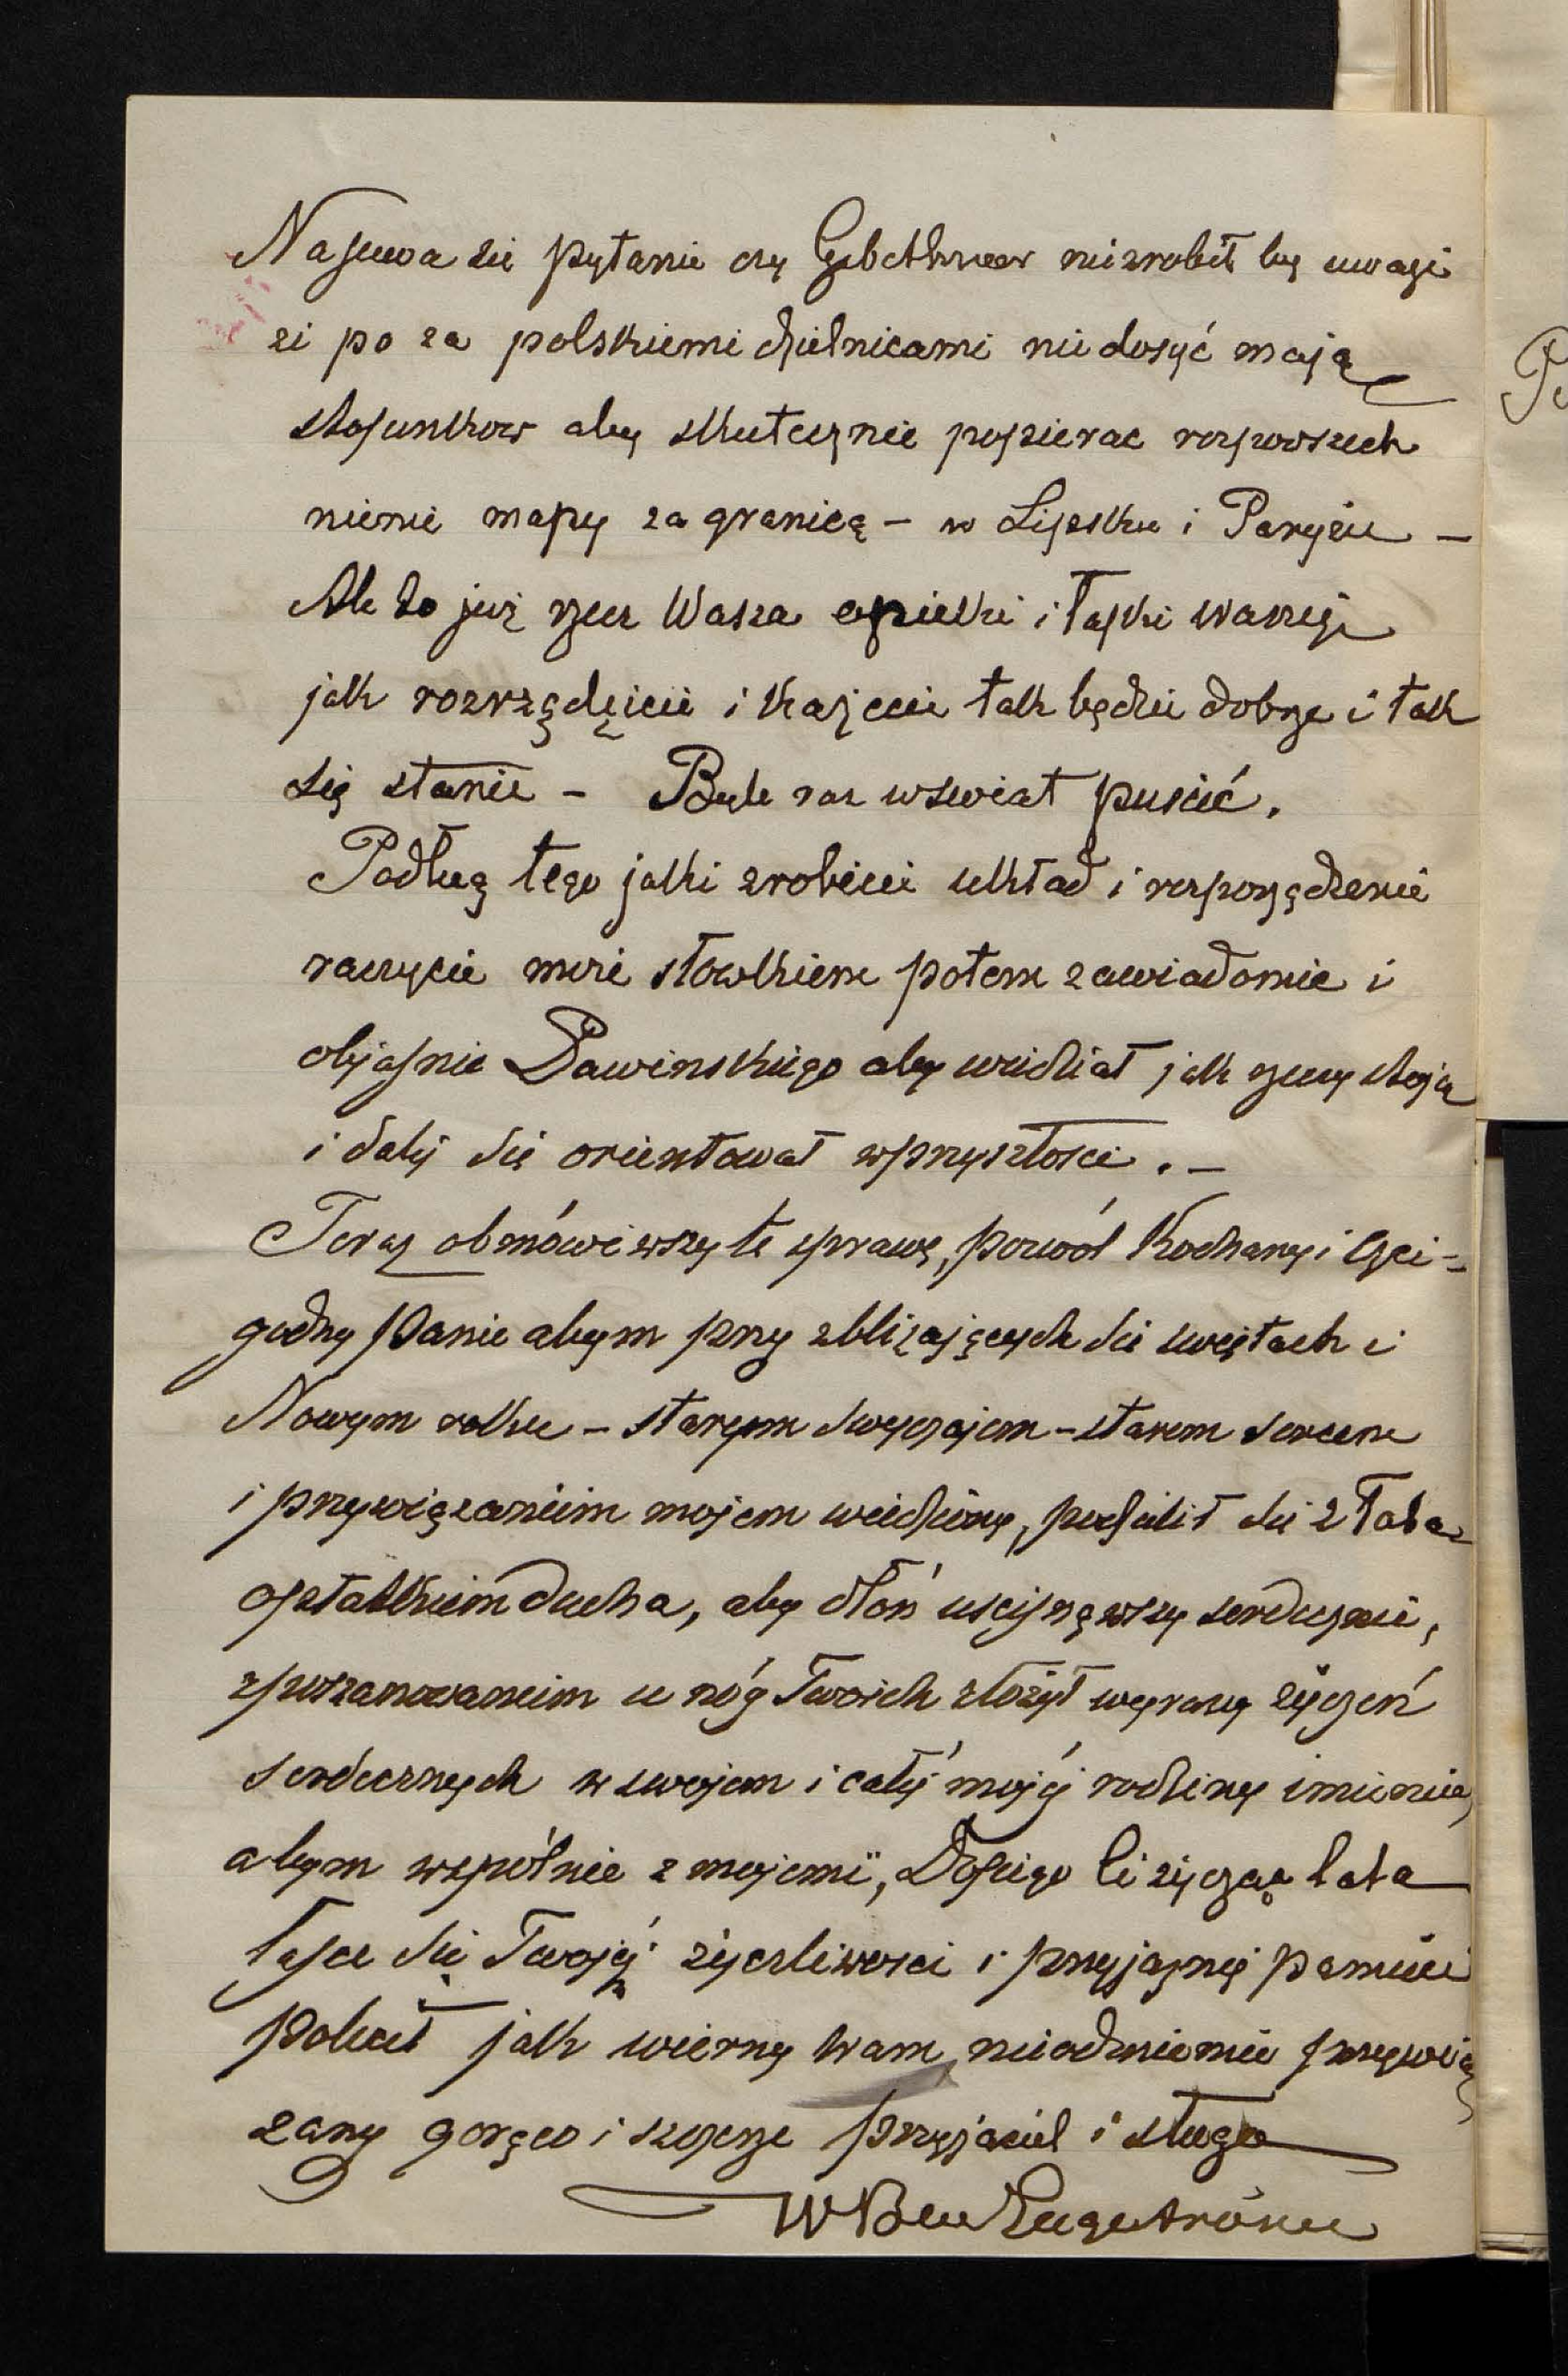 Nasuwa się pytanie czy Gebethner niezrobił by uwagi
że po za polskiemi dzielnicami nie dosyć mają
stosunkow aby skutecznie popierac rozpowszech
nienie mapy za granicą – w Lipsku i Paryżu –
Ale to już rzecz Wasza opieki i łaski waszej
jak rozrządzicie i każecie tak będzie dobrze i tak
się stanie – Byle raz wswiat puscić.
Podług tego jaki zrobicie układ i rozporządzenie
raczycie mnie słowkiem potem zawiadomic i
objasnic Pawinskiego aby wiedział jak rzeczy stoją
i dalej się orientował wprzyszłosci . –
Teraz obmówiwszy te sprawę, pozwól Kochany i Czci-
godny Panie abym przy zbliżających się swiętach i
Nowym roku – starym zwyczajem – starem sercem
i przywiązaniem mojem wiedziony, podzielił się z Tobą
opłatkiem ducha, aby dłoń uscisnąwszy serdecznie,
zposzanowaniem u nóg Twoich złożył wyrazy życzeń
serdecznych w swojem i całéj mojéj rodziny imieniu,
abym wspólnie z mojemi, Dosiego Ci życząc lata
łasce się Twojéj życzliwosci i przyjaznej pamięci
polecił jak wierny Wam, nieodmiennie przywią
zany gorąco i szczerze przyjaciel i sługa
W Ben Engeström